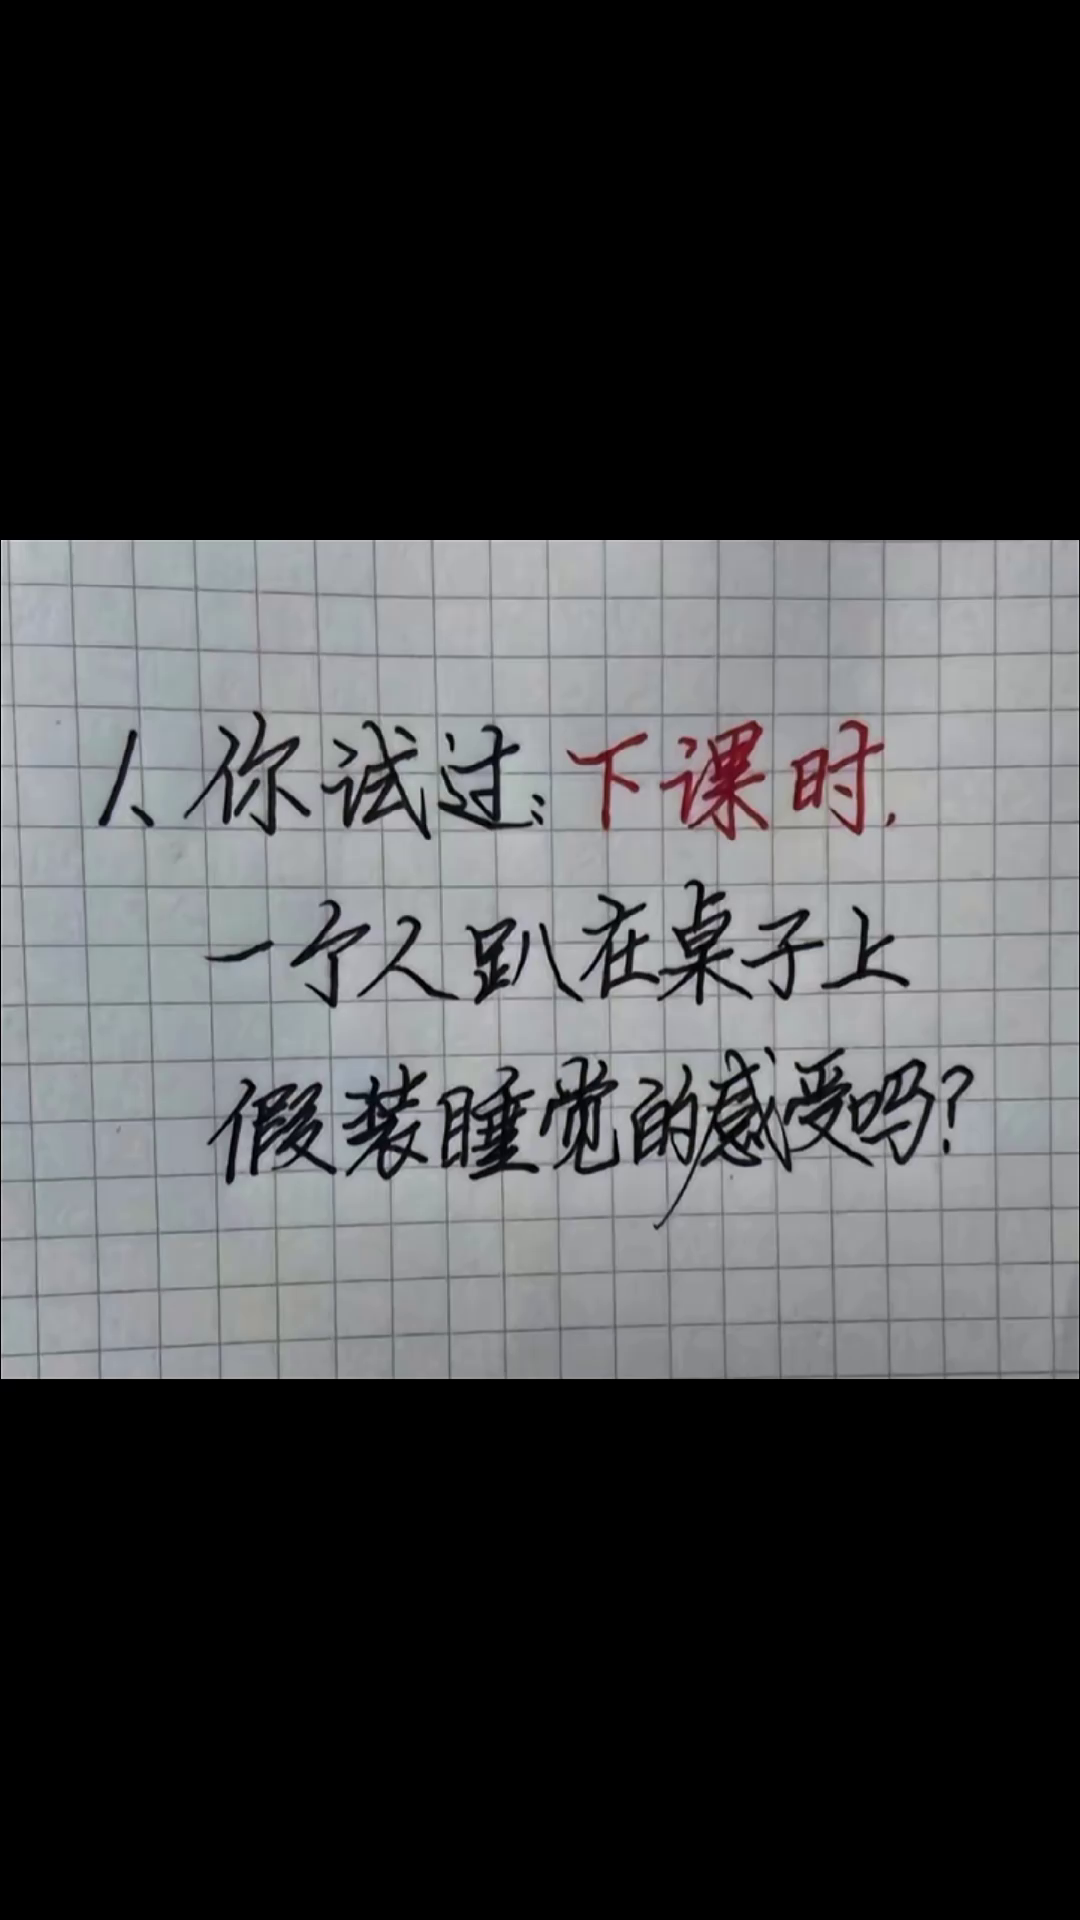 1、你试过：下课时，
一个人趴在桌子上
假装睡觉的感受吗？